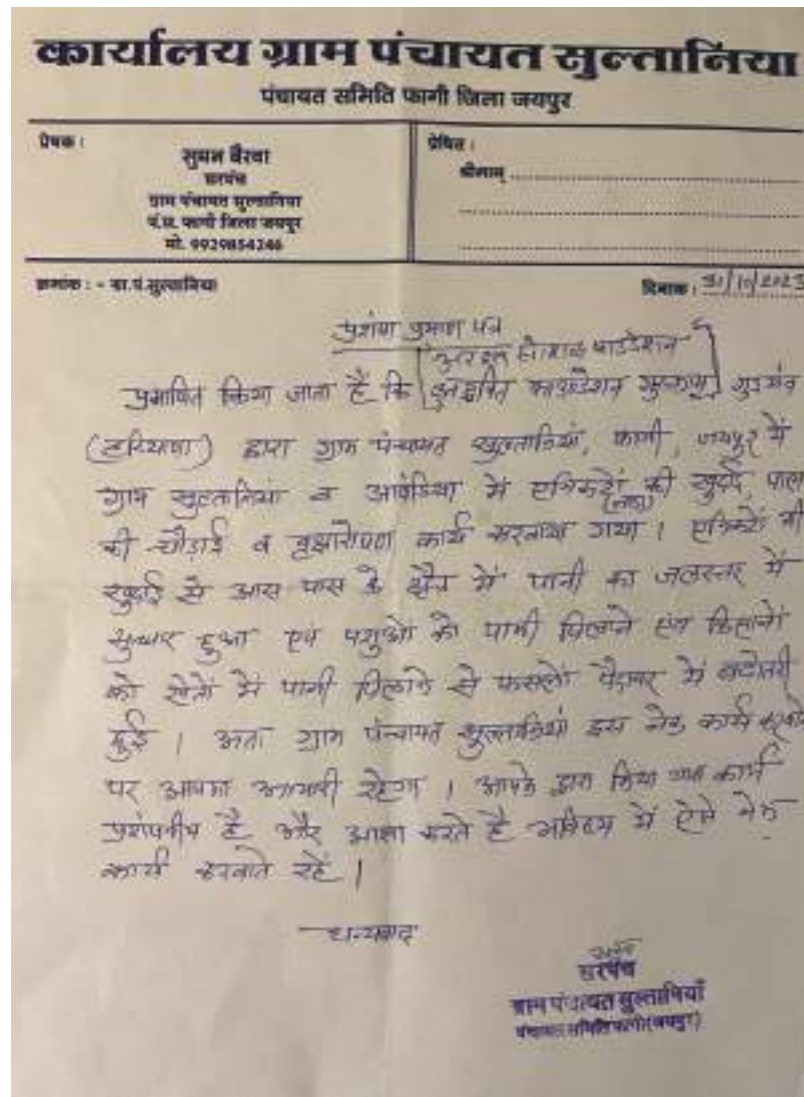 कार्यालय ग्राम पंचायत सुल्तानिया
पंचायत समिति फागी जिला जयपुर
प्रेषक :
सुमन बैरवा
सरपंच
ग्राम पंचायत सुल्तानिया
पं.स. फागी जिला जयपुर
मो. 9929854246
प्रेषित :
श्रीमान्
क्रमांक : - ग्रा.पं.सुल्तानिया
दिनांक : 31/10/2023
प्रशंषा प्रमाण पत्र
फाउंडेशन
प्रमाणित किया जाता है कि फाउंडेशन गुडगांव
(हरियाणा) द्वारा ग्राम पंचायत सुल्तानियां, फागी, जयपुर में
ग्राम सुल्तानियां व में एनिकटों की खुदाई, पाल
(नाडी)
की चौड़ाई व वृक्षारोपण कार्य करवाया गया । एनिकटों की
खुदाई से आस पास के क्षेत्र में पानी का जलस्तर में
सुधार हुआ एवं पशुओं को पानी पिलाने एवं किसानों
को खेतों में पानी पिलाने से फसलों पैदावार में बढोतरी
हुई । अतः ग्राम पंचायत सुल्तानियां इस नेक कार्य करवाने
पर आपका आभारी रहेगा । आपके द्वारा किया गया कार्य
प्रशंषनीय है और आशा करते है भविष्य में ऐसे नेक
कार्य करवाते रहें ।
धन्यवाद
सरपंच
ग्राम पंचायत सुल्तानियाँ
पंचायत समिति फागी(जयपुर)